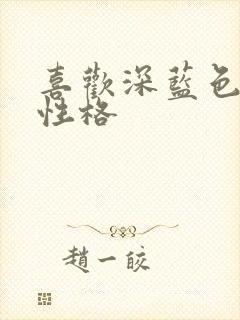 喜歡深藍色
性格
趙一皎